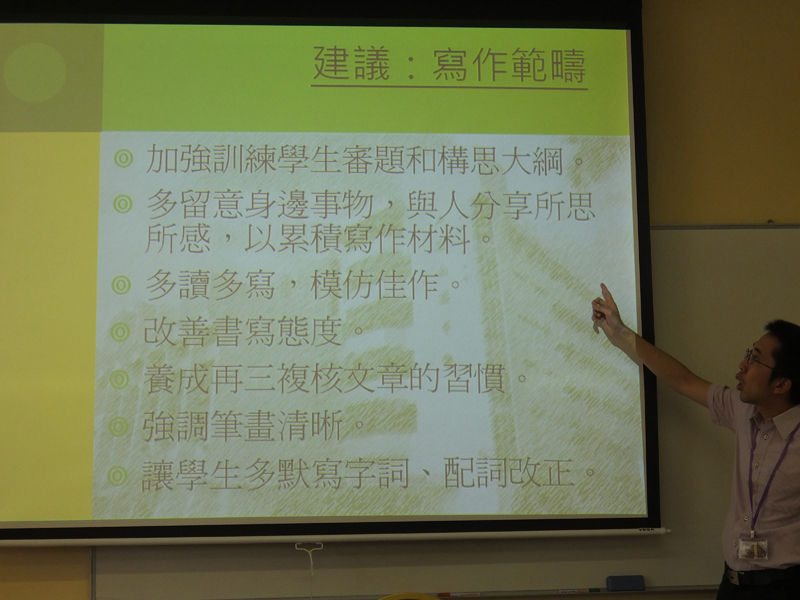 建議：寫作範疇
加強訓練學生審題和構思大綱。
多留意身邊事物，與人分享所思
所感，以累積寫作材料。
多讀多寫，模仿佳作。
改善書寫態度。
養成再三複核文章的習慣。
強調筆畫清晰。
讓學生多默寫字詞、配詞改正。